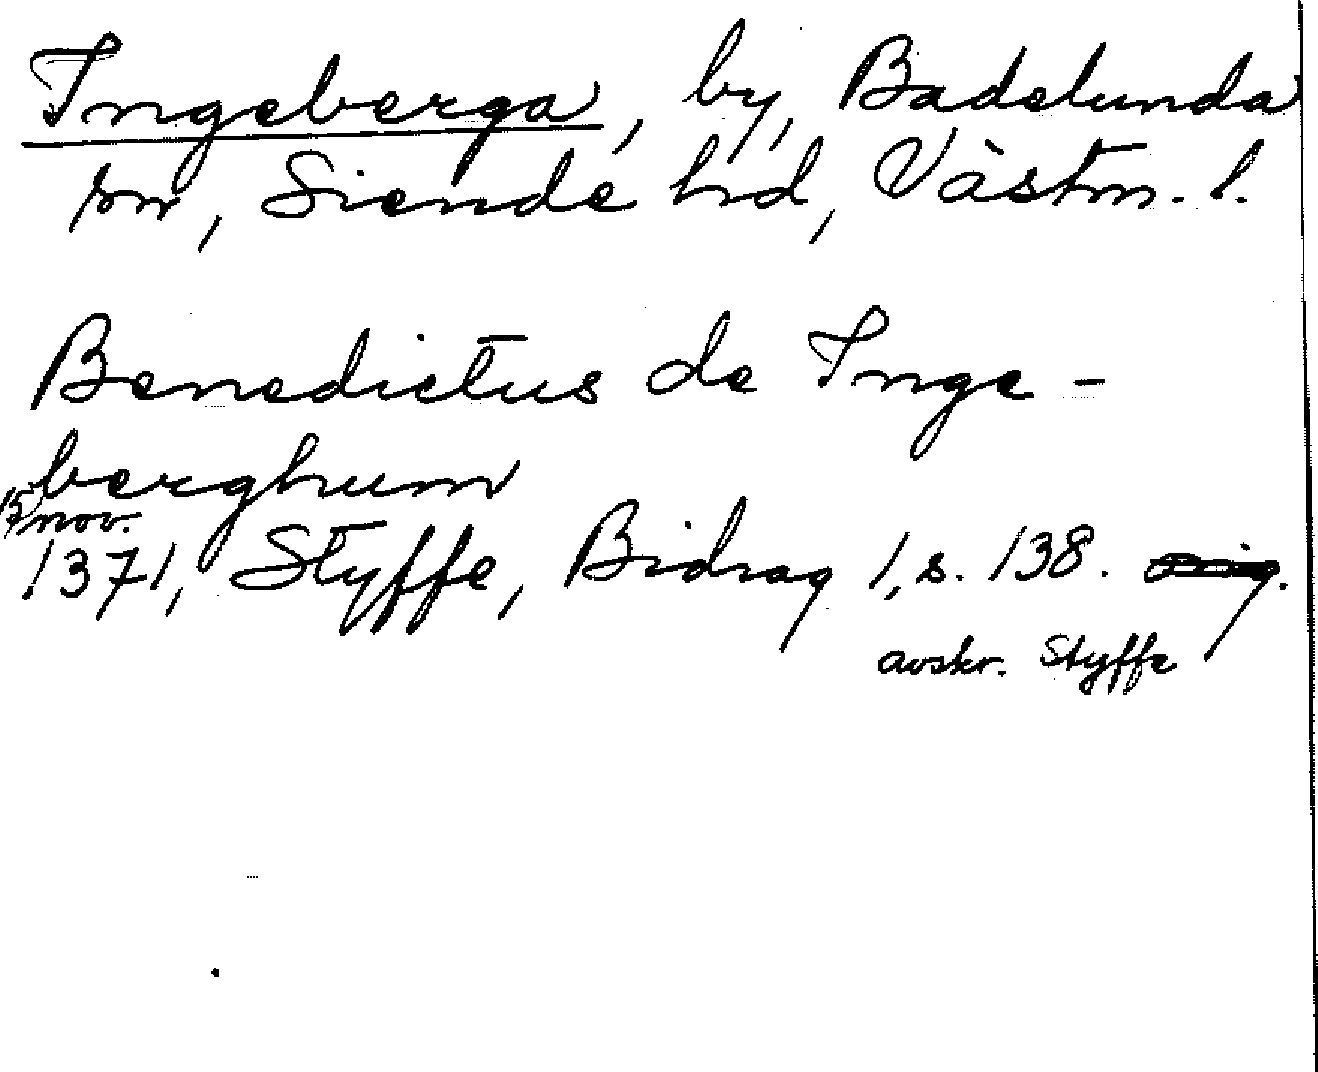 Ingeberga, by, Badelunda
sn, Siende hd, Västm. l.
Benedictus de Inge-
berghum
nov.
1371, Styffe, Bidrag 1, s. 138. orig.
avskr. Styffe